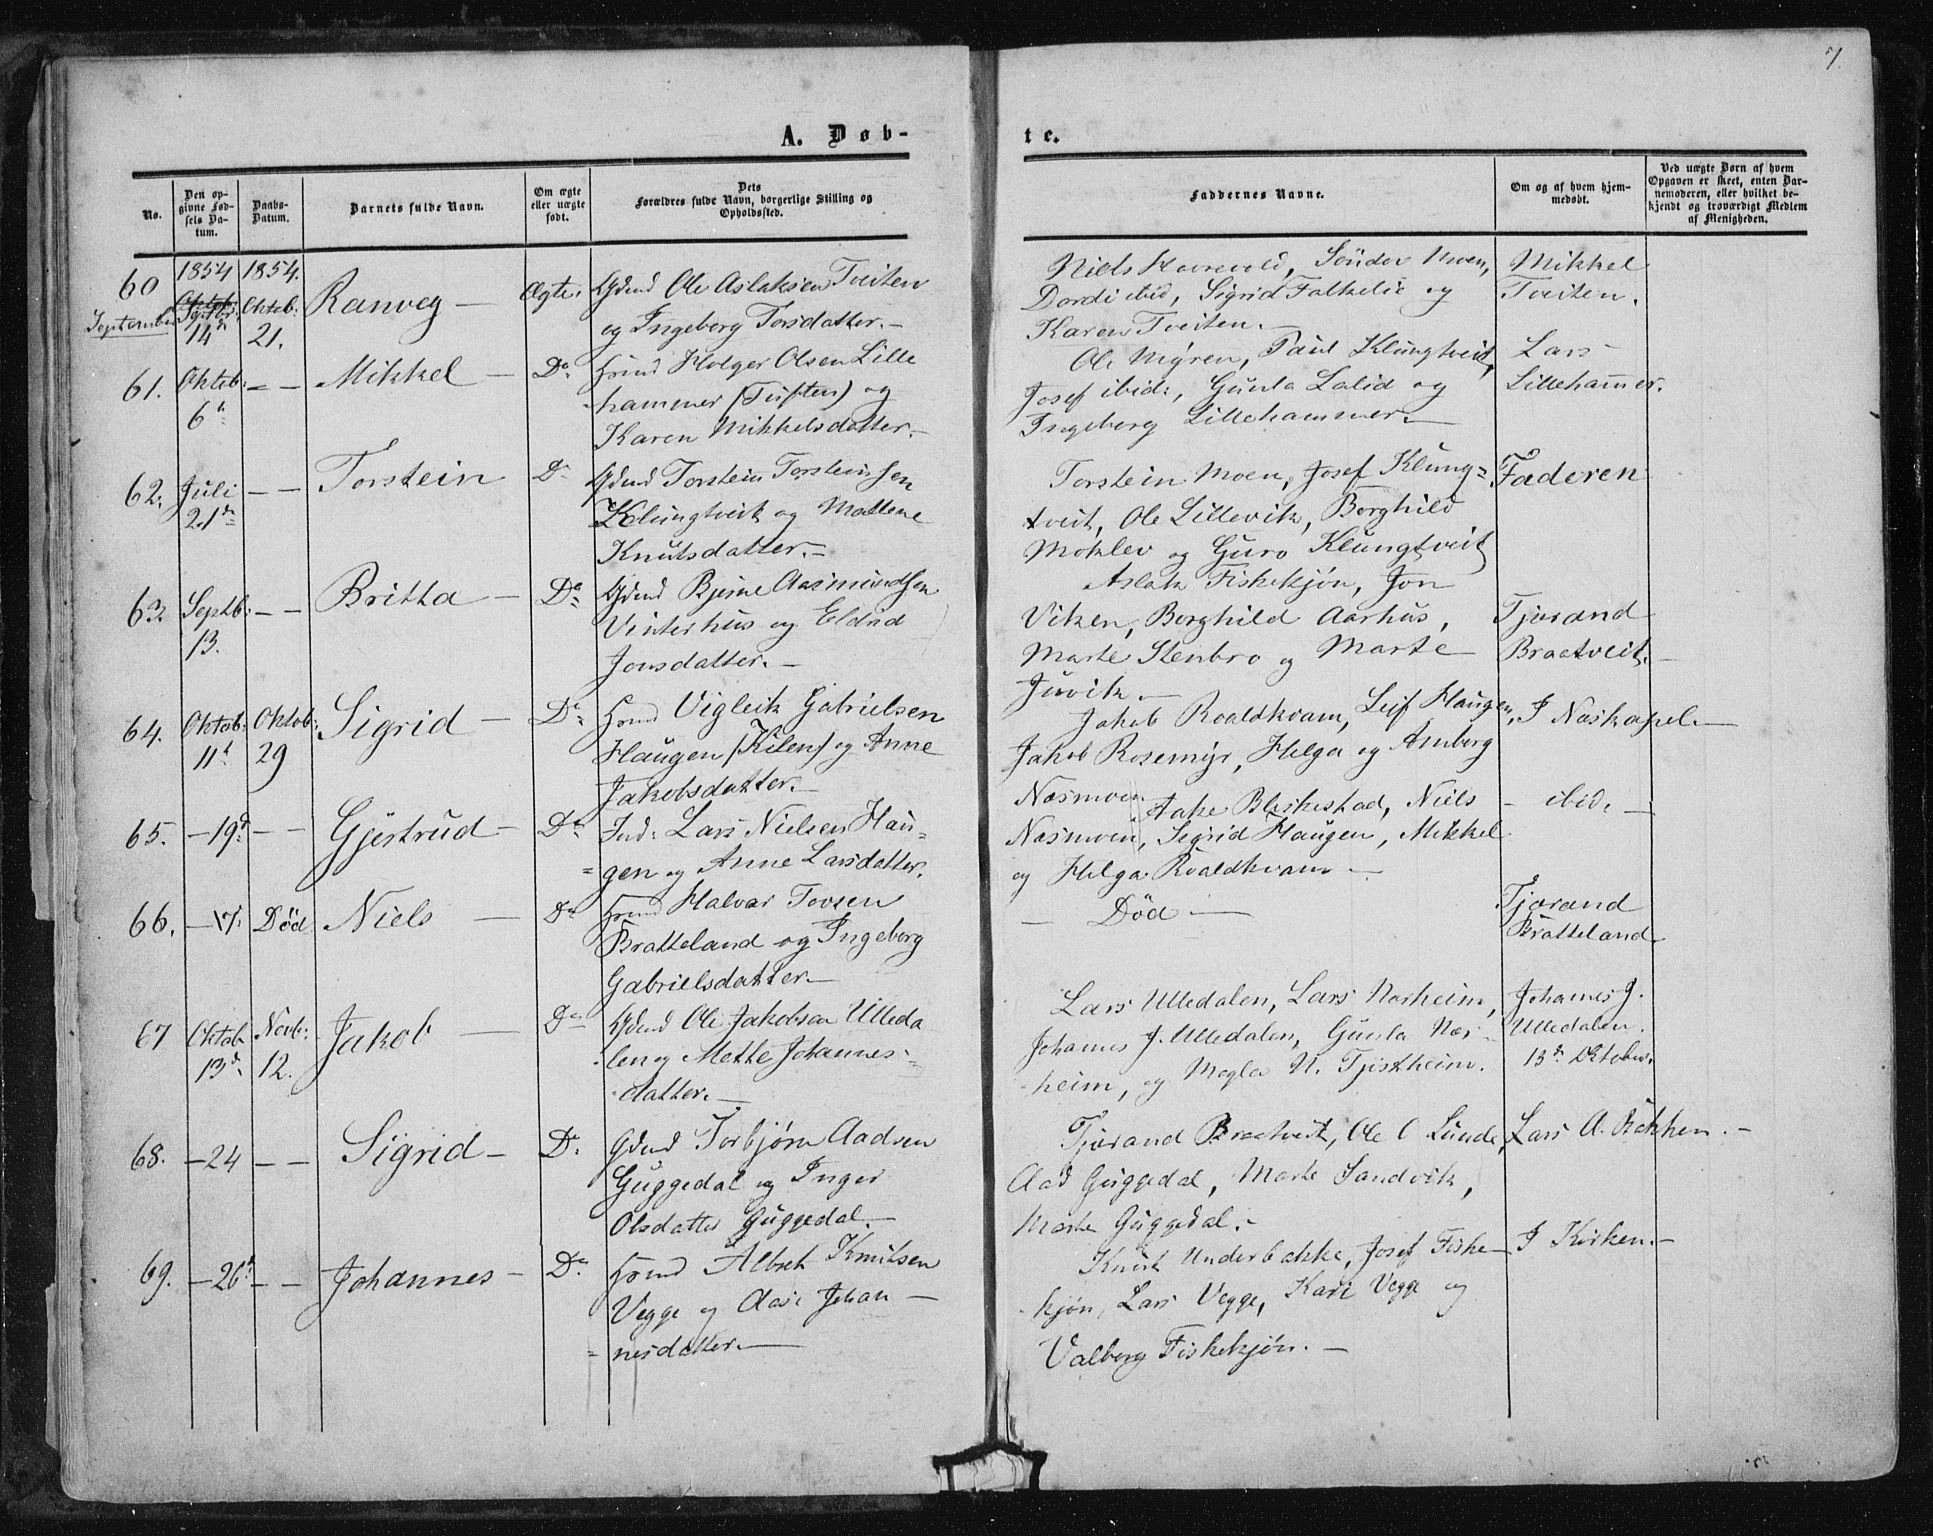 7.
A. Døb-
te.
No.
Den op-
givne Fød-
sels Da-
tum.
Daabs-
Datum.
Barnets fulde Navn.
Om ægte
eller uægte
født.
Dets
Forældres fulde Navn, borgerlige Stilling og
Opholdssted.
Faddernes Navne.
Om og af hvem hjem-
medøbt.
Ved uægte Børn af hvem
Opgaven er skeet, enten Bar-
nemoderen, eller hvilket be-
kjendt og troværdigt Medlem
af Menigheden.
60
1854
Septbr:
September
14d
1854.
Oktob:
21.
Ranveg —
Ægte.
Gdmd Ole Aslaksen Tveiten
og Ingeborg Torsdatter. —
Niels Moen,
Dordi ibid, Sigrid Falkelie og
Karen Tveiten. —
Mikkel
Tveiten.
61.
Oktob:
6d
— —
Mikkel —
Do
Hmd Holger Olsen Lille
hammer (Tuften) og
Karen Mikkelsdatter. —
Ole Myren, Paul Klungtveit,
Josef ibid:, Gunla Lalid og
Ingeborg Lillehammer. —
Lars
Lillehamer.
62.
Juli
21d
— —
Torstein
Do
Gdmd Torstein Torsteinsen
Klungtveit og Mallene
Knutsdatter. —
Torstein Moen, Josef Klung=
tveit, Ole Lillevik, Borghild
Moklev og Guro Klungtveit
Faderen
63.
Septb:
13.
— —
Britta —
Do
Gdmd Bjerne Aasmundsen
Vinterhus og Eldrid
Jonsdatter. —
Aslak Fiskekjøn, Jon
Viken, Borghild Aarhus,
Marte Stenbro og Marte
Juvik. —
Tjorand
Braatveit. —
64.
Oktob:
11d
Oktob:
29
Sigrid —
Do
Hmd Vigleik Gabrielsen
Haugen (Kilen) og Anne
Jakobsdatter. —
Jakob Roaldkvam, Leif Haugen,
Jakob Rosemyr, Helga og Amberg
Næsmoen
I Næskapel. —
65.
— 19d
— —
Gjertrud —
Do
Ind: Lars Nielsen Hau=
=gen og Anne Larsdatter.
Aake Bleskestad, Niels
Næsmoen, Sigrid Haugen, Mikkel
og Helga Roaldkvam —
— ibid. —
66.
— 17.
Død
Niels —
Do
Hmd Halvar Tovsen
Bratteland og Ingeborg
Gabrielsdatter. —
— Død —
Tjorand
Bratteland
67
Oktob
13d
Novb:
12.
Jakob —
Do
Gdmd Ole Jakobsen Ulleda
len og Mette Johannes-
datter. —
Lars Ulledalen, Lars Nærheim,
Johanes J. Ulledalen, Gunla Nær-
heim, og Magla N. Tjøstheim.
Johanes J.
Ulledalen.
13d Oktober.
68.
— 24
— —
Sigrid —
Do
Gdmd Torbjørn Aadsen
Guggedal og Inger
Olsdatter Guggedal. —
Tjorand Braatveit, Ole O Lunde,
Aad Guggedal, Marte Sandvik,
Marte Guggedal. —
Lars A. Bakken. —
69.
— 26d
— —
Johannes —
Do
Hmd Albret Knutsen
Vegge og Aase Johan —
= nesdatter. —
Knut Underbakke, Josef Fiske —
kjøn, Lars Vegge, Kari Vegge og
Valborg Fiskekjøn. —
I Kirken. —